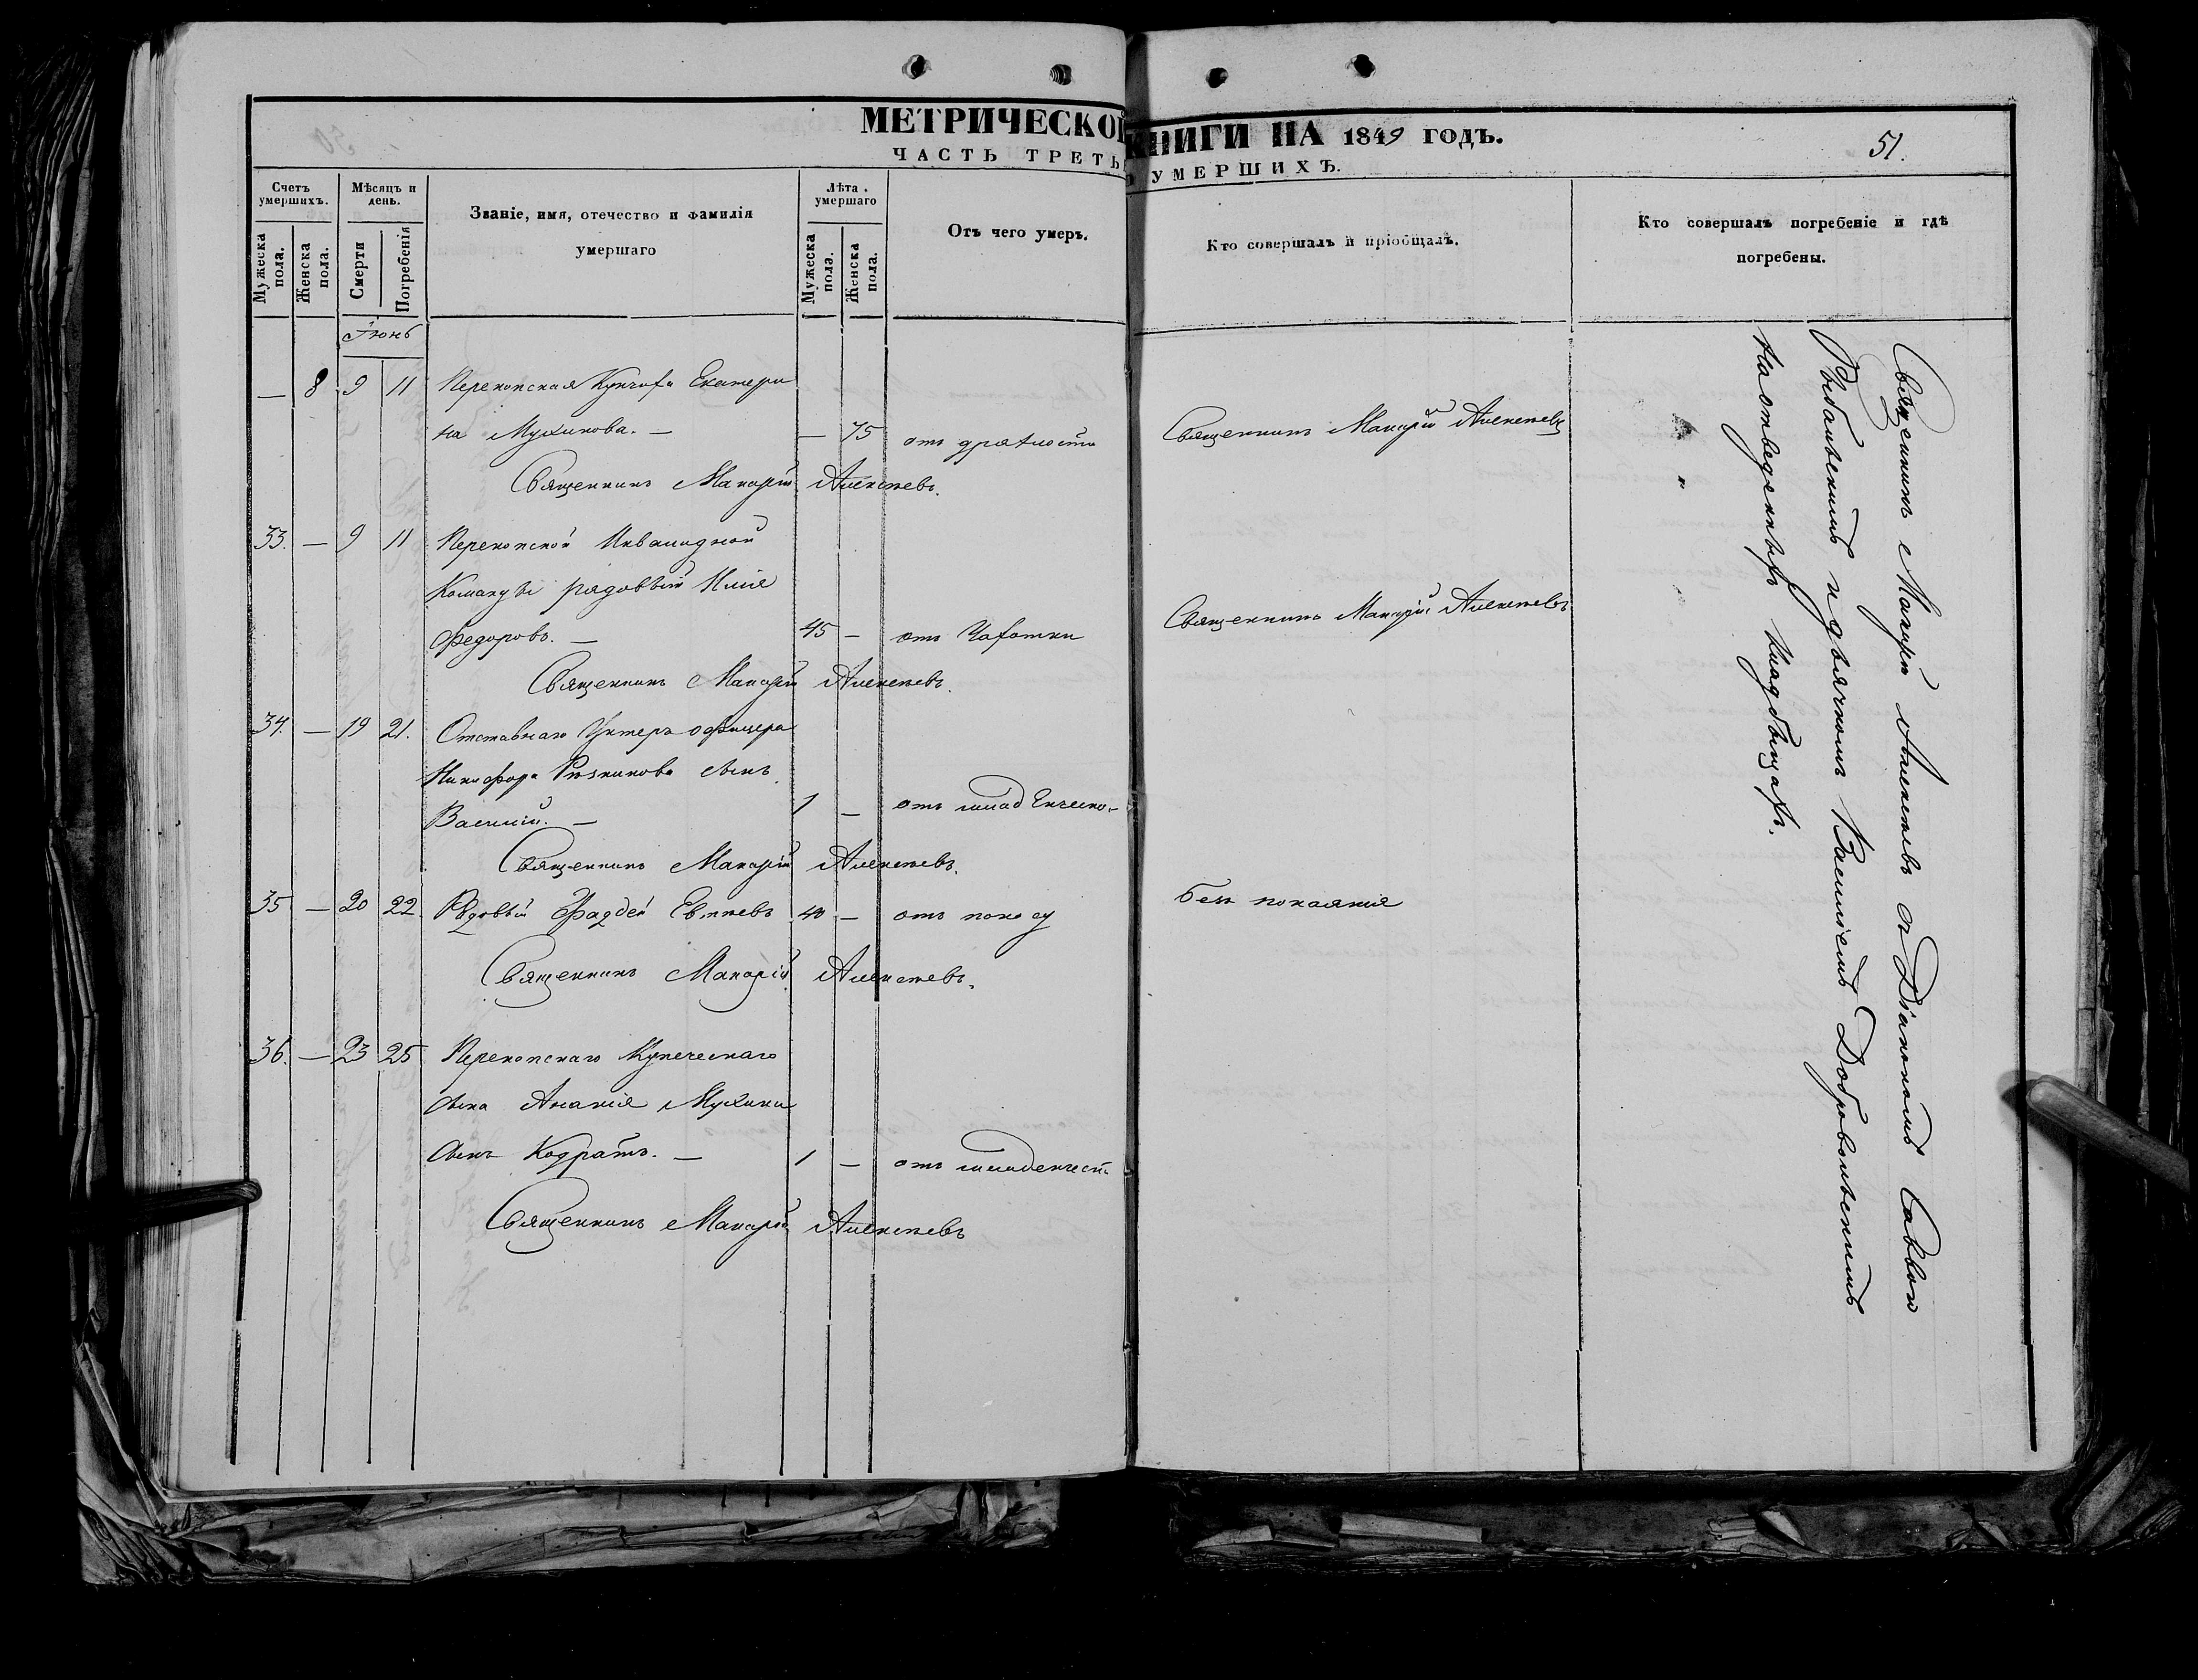 МЕТРИЧЕСКОЙ КНИГИ НА 1849 ГОДЪ.
51.
ЧАСТЬ ТРЕТЬ УМЕРШИХЪ.
Счетъ умершихъ.
Мужеска пола.
Женска пола.
Мѣсяцъ и день.
Смерти
Погребенія
Званіе, имя, отечество и фамилія
умершаго
Лѣта умершаго
Мужеска пола.
Женска пола.
Отъ чего умеръ.
Кто совершалъ и пріобщалъ.
Кто совершалъ погребеніе и гдѣ
погребены.
Іюнь
— 8 9 11 Перекопская Купчиха Екатери
на Мухинова. — — 75 отъ дряхлости Священникъ Макарій Алексѣевъ
Священникъ Макарій Алексѣевъ.
33. — 9 11 Перекопской Инвалидной
Команды рядовый Илія
Федоровъ. — 45 — отъ Чахотки Священникъ Макарій Алексѣевъ
Священникъ Макарій Алексѣевъ.
34. — 19 21. Отставнаго Унтеръ офицера
Никифора Рѣзникова сынъ
Василій. — 1 — отъ младенческо-
Священникъ Макарій Алексѣевъ.
35 — 20 22. Рядовый Фаддей 40 — отъ поносу безъ покаянія
Священникъ Макарій Алексѣевъ.
36. — 23 25 Перекопскаго Купеческаго
сына Ананія Мухина
сынъ Кодратъ. — 1 — отъ младенчест
Священникъ Макарій Алексѣевъ
Священникъ Макарій Алексѣевъ съ Діакономъ Саввою
Рыбальскимъ и дьячкомъ Василіемъ Добровольскимъ
На отведенныхъ кладбищахъ.